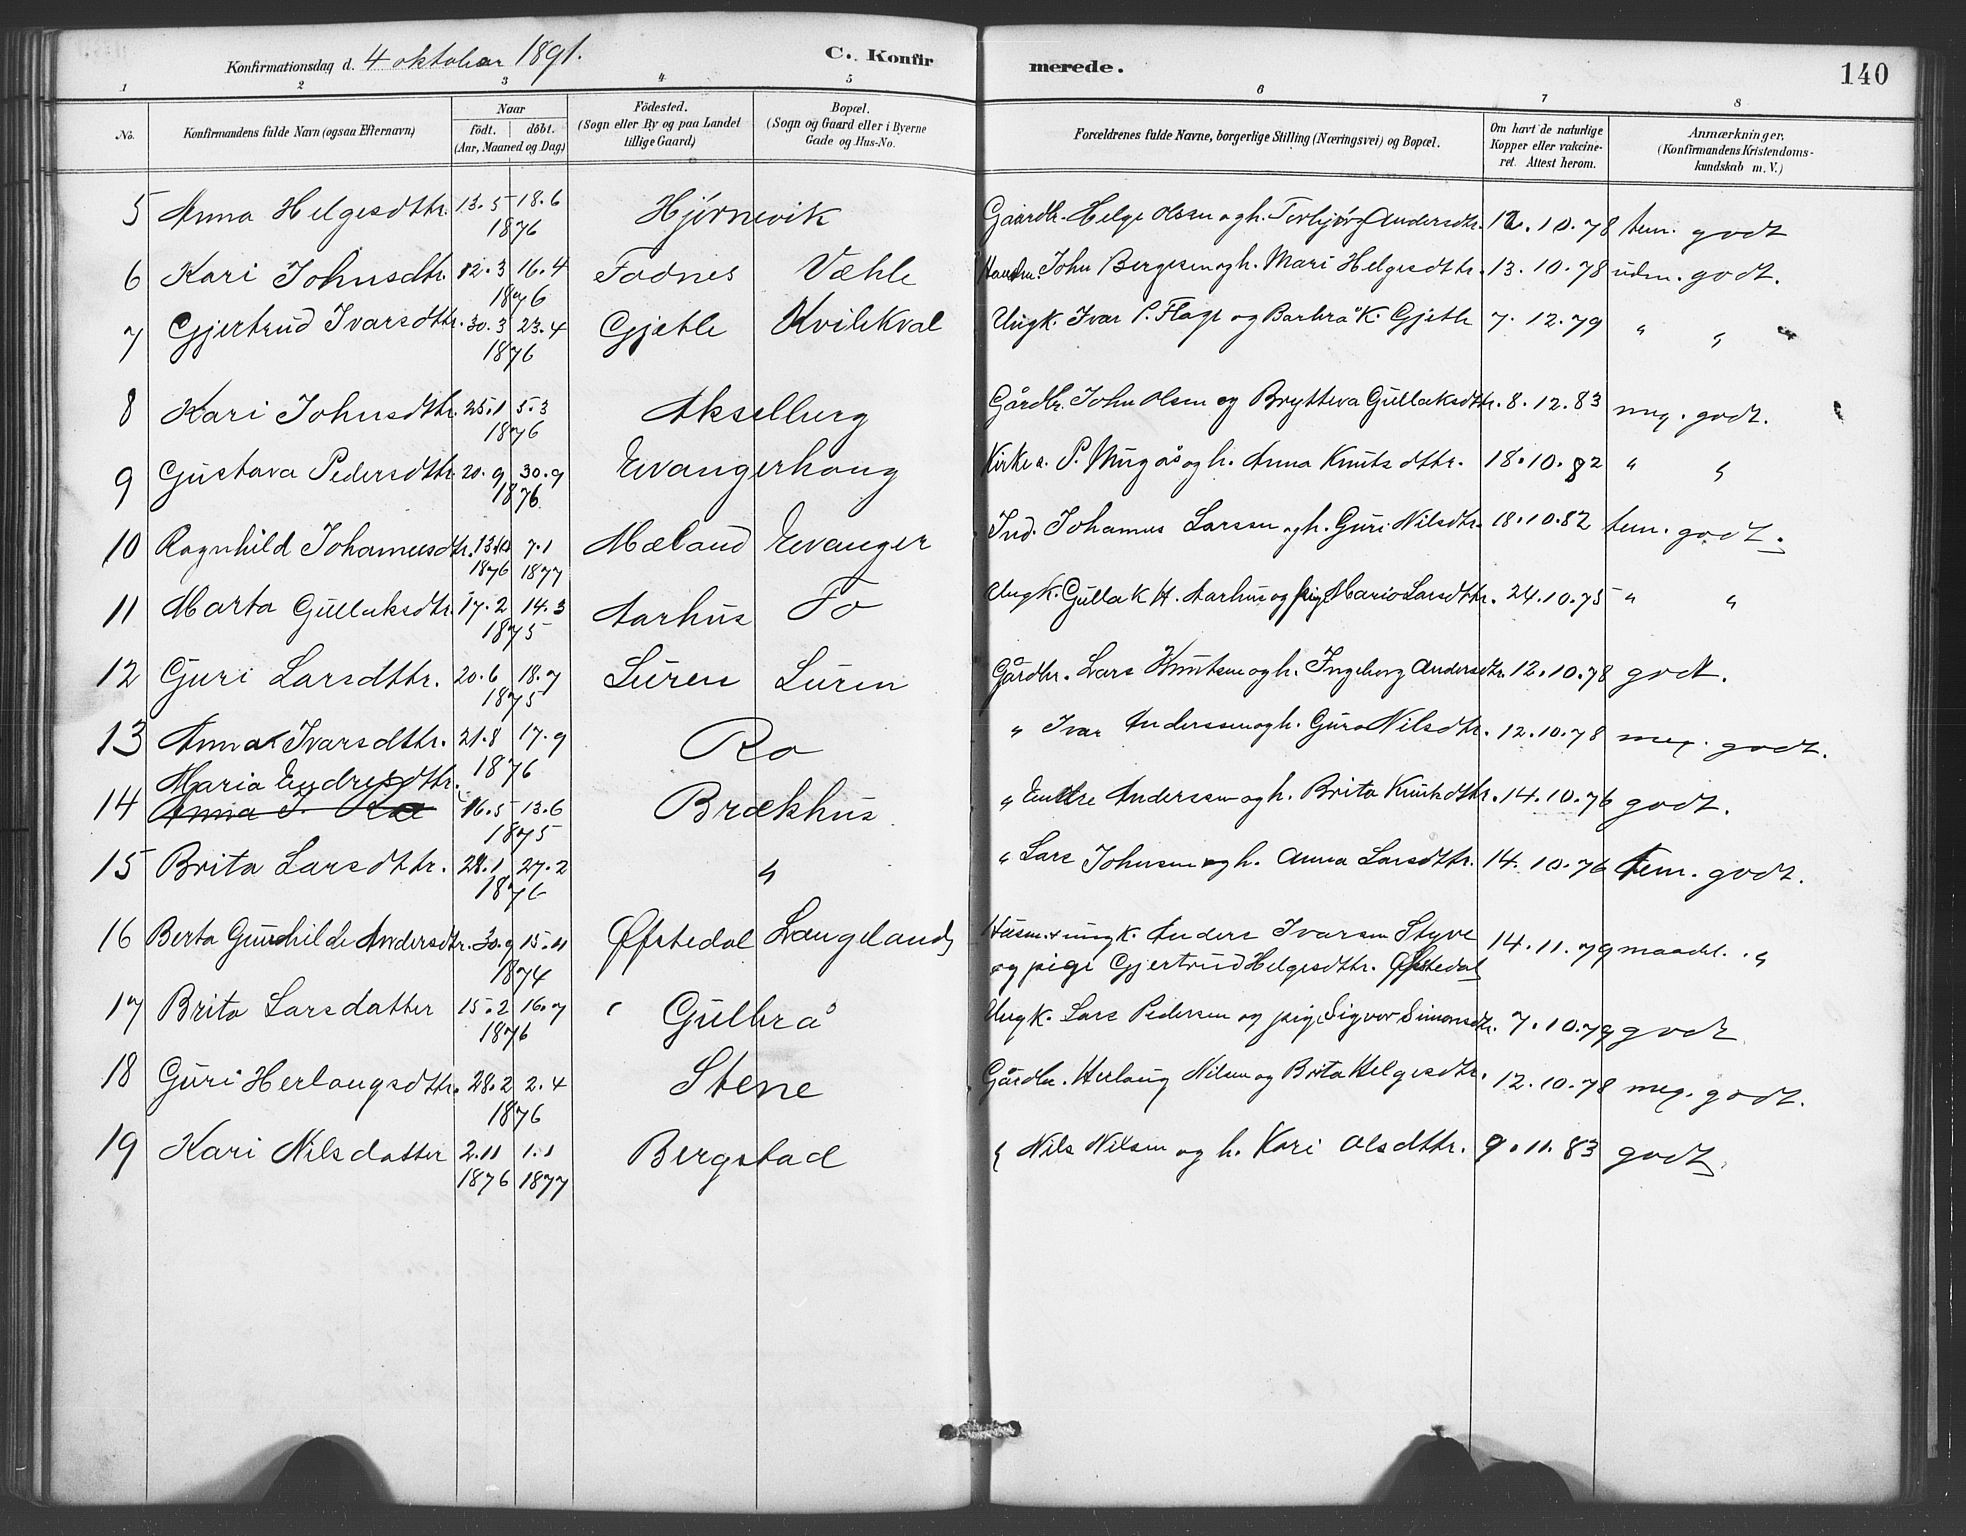 Konfirmationsdag d. 4 oktober 1891.
C. Konfirmerede.
140
1 2 3 4 5 6 7 8
No.
Konfirmandens fulde Navn (ogsaa Efternavn)
Naar
födt. döbt.
(Aar, Maaned og Dag)
Födested.
(Sogn eller By og paa Landet
tillige Gaard)
Bopæl.
(Sogn og Gaard eller i Byerne
Gade og Hus-No.
Forældrenes fulde Navne, borgerlige Stilling (Næringsvei) og Bopæl.
Om havt de naturlige
Kopper eller vakcine-
ret. Attest herom.
Anmærkninger.
(Konfirmandens Kristendoms-
kundskab m. V.)
5 Anna Helgesdttr. 13.5 18.6 Hjørnevik Gaardbr. Helge Olsen og h. Torbjørg Andersdtr. 12.10.78 tem. godt
1876
6 Kari Johnsdtr. 12.3 16.4 Fadnes Væhle John Bergesen og h. Mari Helgesdttr. 13.10.78 udm. godt.
1876
7 Gjertrud Ivarsdttr. 30.3 23.4 Gjetle Kvilekval Ungk. Ivar P. Flage og Barbra K. Gjetle 7.12.79 " "
1876
8 Kari Johnsdttr. 25.1 5.3 Akselberg Gårdbr. John Olsen og Brytteva Gullaksdtr. 8.12.83 meg. godt.
1876
9 Gustava Pedersdttr. 20.9 30.9 Evangerhaug Kirkes. P. Mugås og h. Anna Knutsdttr. 18.10.82 " "
1876
10 Ragnhild Johannesdtr. 13.10 7.1 Mæland Evanger Ind. Johannes Larsen og h. Guri Nilsdtr. 18.10.82 tem. godt.
1876 1877
11 Marta Gullaksdtr. 17.2 14.3 Aarhus Fo Ungk. Gullak H. Aarhus og pige Maria Larsdttr. 24.10.75 " "
1875
12 Guri Larsdttr. 20.6 18.7 Suren Suren Gårdbr. Lars Knutsen og h. Ingeborg Andersdtr. 12.10.78 godt.
1875
13 Anna Ivarsdttr. 21.8 17.9 Ro " Ivar Anderssen og h. Guro Nilsdtr. 12.10.78 meg. godt.
1876
Maria Endresdttr.
14 Anna I. Ro 16.5 13.6 Brækhus " Endre Anderssen og h. Brita Knutsdttr. 14.10.76 godt.
1875
15 Brita Larsdttr. 28.1 27.2 " " Lars Johnsen og h. Anna Larsdttr. 14.10.76 tem. godt.
1876
16 Berta Gunhilde Andersdtr. 30.9 15.11 Øfstedal Langeland Husm. + ungk. Anders Ivarsen Styve 14.11.79 maadel. "
1874 og pige Gjertrud Helgesdttr. Øfstedal
17 Brita Larsdatter 15.2 16.7 Gulbrå Ungk. Lars Pedersen og pige Sigvor Simonsdtr. 7.10.79 godt
1876
18 Guri Herlaugsdttr. 28.2 2.4 Stene Gårdbr. Herlaug Nilsen og Brita Helgesdtr. 12.10.78 meg. godt.
1876
19 Kari Nilsdatter 2.11 1.1 Bergstad " Nils Nilsen og h. Kari Olsdttr. 9.11.83 godt
1876 1877